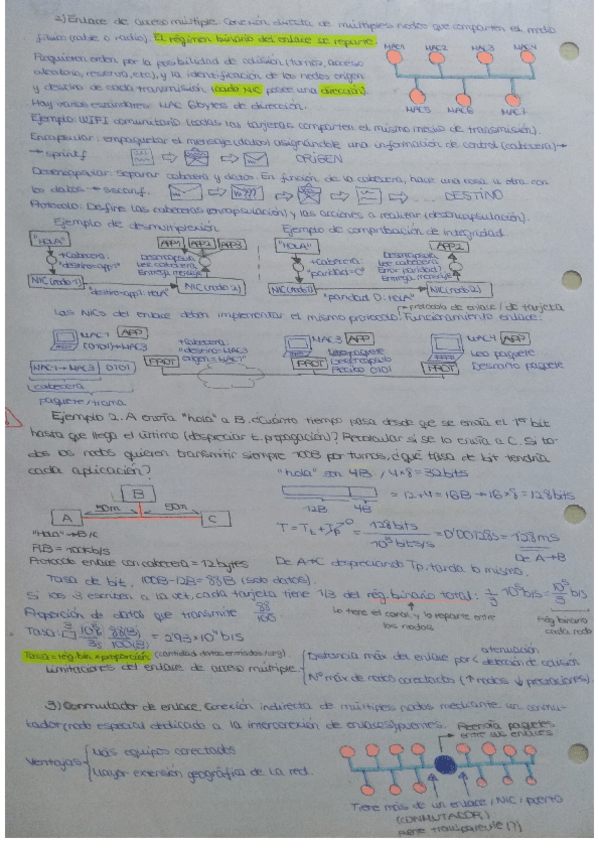 2) Enlace de acceso múltiple. Conexión directa de múltiples nodos que comparten el medio
físico (cable o radio). El régimen binario del enlace se reparte.
MAC1 MAC2 MAC3 MAC4
Requieren orden por la posibilidad de colisión (turnos, acceso
aleatorio, reserva, etc), y la identificación de los nodos origen
y destino de cada transmisión (cada NIC posee una dirección).
MAC5 MAC6 MAC7
Hay varios estándares: MAC 6bytes de dirección.
Ejemplo: WIFI comunitario (todas las tarjetas comparten el mismo medio de transmisión).
Encapsular: empaquetar el mensaje (datos) asignándole una información de control (cabecera) →
→ sprintf ORIGEN
Desencapsular: separar cabecera y datos. En función de la cabecera, hace una cosa u otra con
los datos → sscanf. DESTINO
Protocolo: Define las cabeceras (encapsulación) y las acciones a realizar (desencapsulación).
Ejemplo de desmultiplexión Ejemplo de comprobación de integridad
"HOLA" APP1 APP2 APP3 "HOLA" APP2
+Cabecera: "destino=app1" Desencapsula Lee cabecera Entrega mensaje
+Cabecera: "paridad=0" Desencapsula Lee cabecera Error paridad? Entrega mensaje
NIC(nodo1) "destino=app1: HOLA" NIC(nodo2) NIC(nodo1) "paridad 0: HOLA" NIC(nodo2)
→ protocolo de enlace / de tarjeta
Las NICs del enlace deben implementar el mismo protocolo. Funcionamiento enlace:
MAC1 APP (0101)→MAC3
+Cabecera: "destino=MAC3 origen=MAC1"
MAC3 APP Lee paquete Desencapsula Recibo 0101
MAC4 APP Lee paquete Descarta paquete
MAC1→MAC3 0101 PROT PROT PROT
cabecera
paquete/trama
Ejemplo 2. A envía "hola" a B. ¿Cuánto tiempo pasa desde que se envía el 1er bit
hasta que llega el último (despreciar t. propagación)? Recalcular si se lo envía a C. Si to-
dos los nodos quieren transmitir siempre 100B por turnos, ¿qué tasa de bit tendría
cada aplicación?
"hola" son 4B, 4×8=32bits
B
50m 50m
12B 4B = 12+4=16B → 16×8=128bits
A C
"Hola" → B/C
RB = 100Kb/s
T = TL + Tp = 128bits / 10^5 bits/s = 0'00128s = 128ms
De A→B
Protocolo enlace con cabecera = 12bytes De A→C despreciando Tp, tarda lo mismo.
Tasa de bit, 100B-12B=88B (solo datos).
Si los 3 escriben a la vez, cada tarjeta tiene 1/3 del rég. binario total: 1/3 · 10^5 b/s = 10^5/3 b/s
Lo tiene el canal y lo reparte entre los nodos
Rég. binario cada nodo
Proporción de datos que transmite 88/100
= 2'93×10^4 b/s
Tasa = rég. bin × proporción
Limitaciones del enlace de acceso múltiple.
Distancia máx del enlace por atenuación detección de colisión
Nº máx de nodos conectados (↑nodos ↓prestaciones).
3) Conmutador de enlace. Conexión indirecta de múltiples nodos mediante un conmu-
tador (nodo especial dedicado a la interconexión de enlaces)/puentes. Reenvía paquetes entre sus enlaces
Ventajas Más equipos conectados
Mayor extensión geográfica de la red.
Tiene más de un enlace / NIC / puerto
(CONMUTADOR)
puente transparente (?)